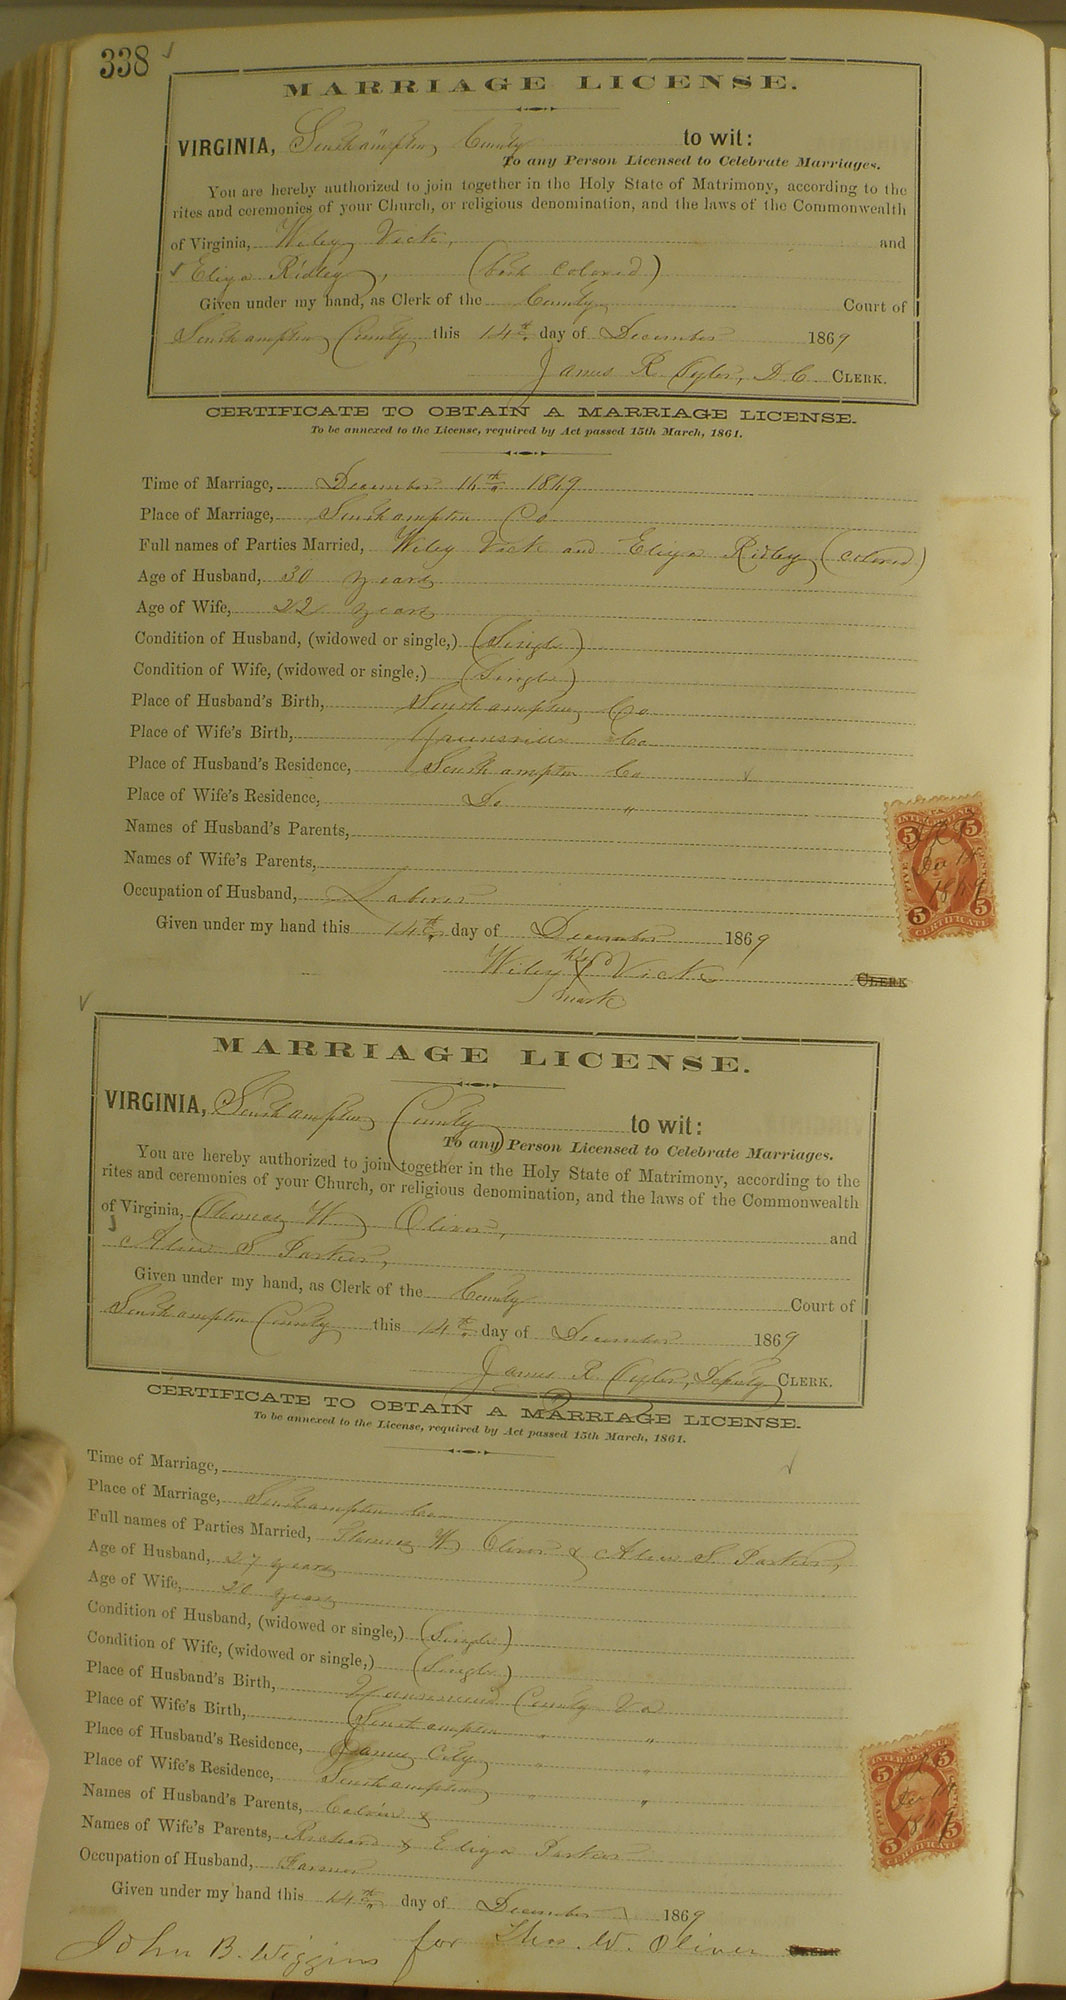 338
MARRIAGE LICENSE.
VIRGINIA, Southampton County to wit:
To any Person Licensed to Celebrate Marriages.
You are hereby authorized to join together in the Holy State of Matrimony, according to the
rites and ceremonies of your Church, or religious denomination, and the laws of the Commonwealth
of Virginia, Wiley Vick, and
Eliza Ridley, (both colored)
Given under my hand, as Clerk of the County Court of
Southampton County this 14th day of December 1869
James R. Tyler, D.C. CLERK.
CERTIFICATE TO OBTAIN A MARRIAGE LICENSE.
To be annexed to the License, required by Act passed 15th March, 1861.
Time of Marriage, December 16th 1869
Place of Marriage, Southampton Co
Full names of Parties Married, Wiley Vick and Eliza Ridley (colored)
Age of Husband, 30 years
Age of Wife, 22 years
Condition of Husband, (widowed or single,) (Single)
Condition of Wife, (widowed or single,) (Single)
Place of Husband's Birth, Southampton Co
Place of Wife's Birth, Co
Place of Husband's Residence, Southampton Co
Place of Wife's Residence, Do "
Names of Husband's Parents,
Names of Wife's Parents,
Occupation of Husband, Laborer
Given under my hand this 14th day of December 1869
Wiley his Vick CLERK
mark
INTER. REVENUE
5 5
Dec 14
1869
5 5
CERTIFICATE
MARRIAGE LICENSE.
VIRGINIA, Southampton County to wit:
To any Person Licensed to Celebrate Marriages.
You are hereby authorized to join together in the Holy State of Matrimony, according to the
rites and ceremonies of your Church, or religious denomination, and the laws of the Commonwealth
of Virginia, Thomas W. Oliver, and
S. Parker,
Given under my hand, as Clerk of the County Court of
Southampton County this 14th day of December 1869
James R. Tyler, Deputy CLERK.
CERTIFICATE TO OBTAIN A MARRIAGE LICENSE.
To be annexed to the License, required by Act passed 15th March, 1861.
Time of Marriage,
Place of Marriage, Southampton Co
Full names of Parties Married, Thomas W. Oliver & S. Parker,
Age of Husband, 27 years
Age of Wife, 20 years
Condition of Husband, (widowed or single,) (Single)
Condition of Wife, (widowed or single,) (Single)
Place of Husband's Birth, Nansemond County Va
Place of Wife's Birth, Southampton " "
Place of Husband's Residence, James City " "
Place of Wife's Residence, Southampton " "
Names of Husband's Parents, Calvin &
Names of Wife's Parents, Richard & Eliza Parker
Occupation of Husband, Farmer
Given under my hand this 14th day of December 1869
John B. Wiggins for Thos. W. Oliver CLERK
INTER. REVENUE
5 5
Dec 14
1869
5 5
CERTIFICATE